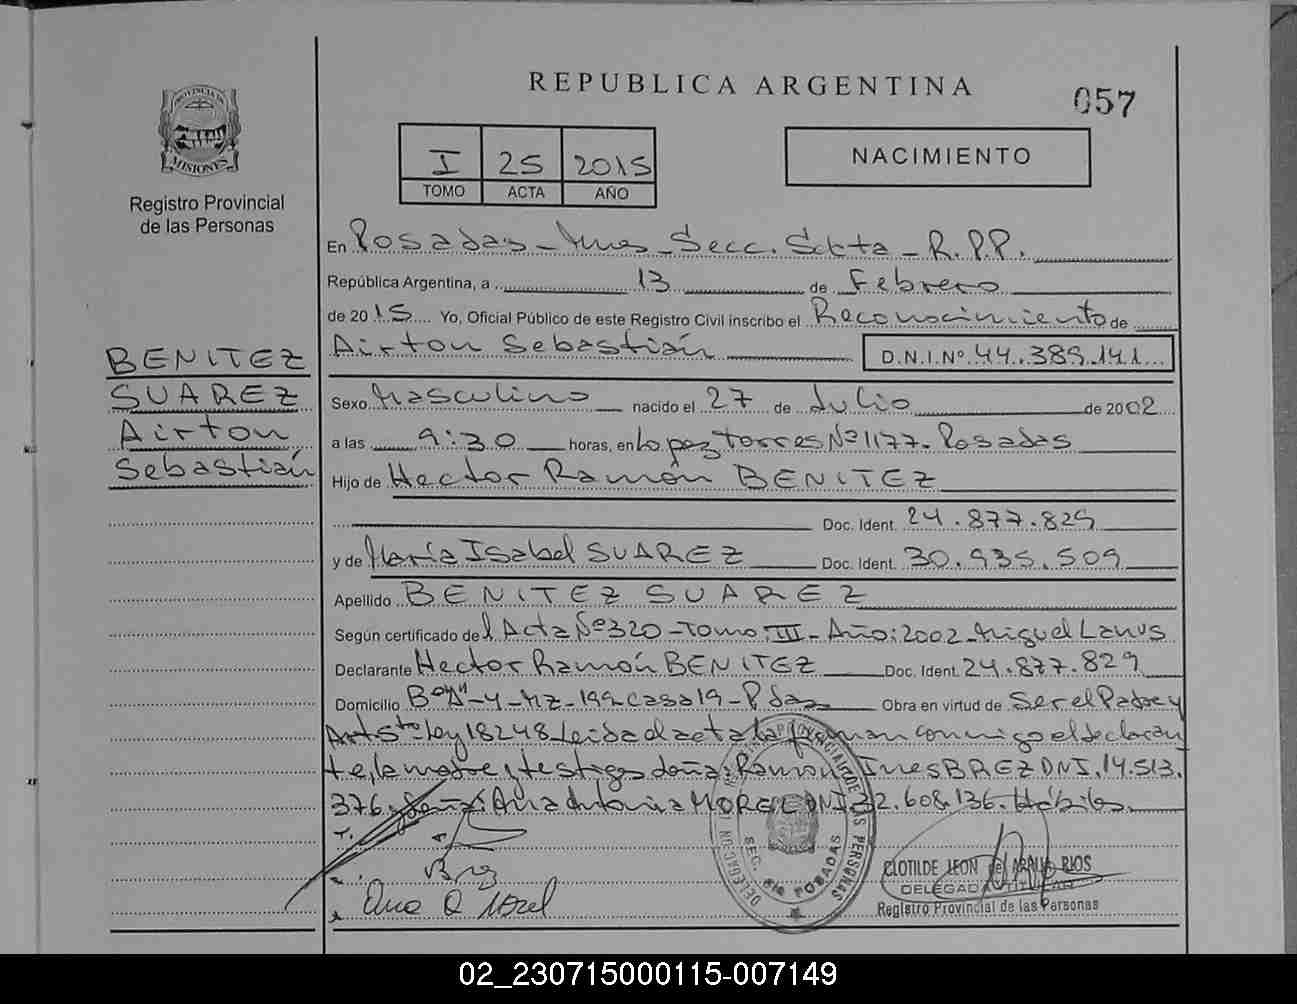 REPUBLICA ARGENTINA
057
PROVINCIA DE
MISIONES
Registro Provincial
de las Personas
I 25 2015
TOMO ACTA AÑO
NACIMIENTO
En Posadas - Mnes - Secc. Sexta - R.P.P.
República Argentina, a 13 de Febrero
de 2015 Yo, Oficial Público de este Registro Civil inscribo el Reconocimiento de
Airton Sebastián D.N.I.Nº 44.389.141
BENITEZ
SUAREZ
Airton
Sebastián
Sexo Masculino nacido el 27 de Julio de 2002
a las 9:30 horas, en Lopez Torres Nº 1177 - Posadas
Hijo de Hector Ramón BENITEZ
Doc. Ident. 24.877.829
y de María Isabel SUAREZ Doc. Ident. 30.935.509
Apellido BENITEZ SUAREZ
Según certificado del Acta Nº 320 - Tomo III - Año: 2002 - Miguel Lanus
Declarante Hector Ramón BENITEZ Doc. Ident. 24.877.829
Domicilio Bº "A" - 4 - Mz - 199 - Casa 19 - Pdas Obra en virtud de Ser el Padre y
Art 5to Ley 18248 - Leida el acta la firman conmigo el declaran
te, la madre y testigos doña: Ramona Ines BREZ DNI. 14.513.
376. doña: Ana Antonia MOREL DNI 22.608.136. Hábiles.
Brez
Ana A Morel
DELEGACION PROVINCIAL DE LAS PERSONAS
SEC. 6ta POSADAS
CLOTILDE LEON de ARAUJO RIOS
DELEGADA TITULAR
Registro Provincial de las Personas
02_230715000115-007149